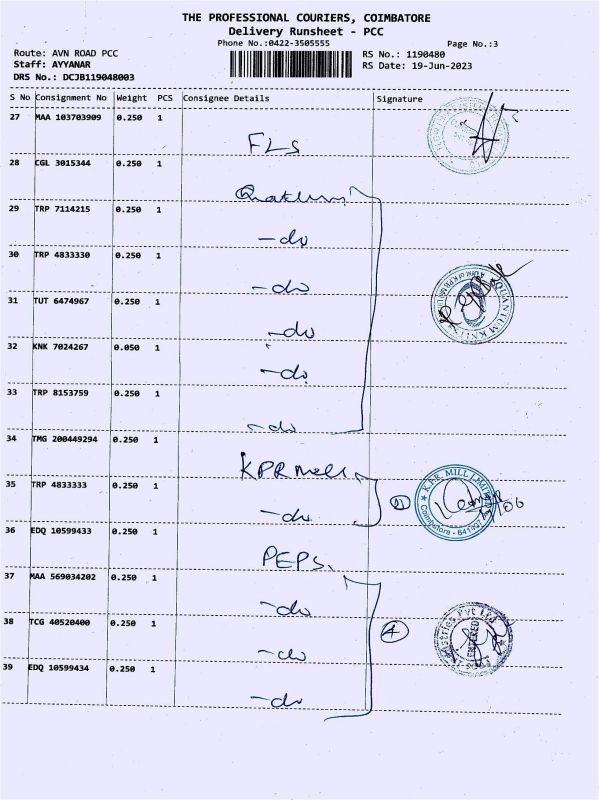 THE PROFESSIONAL COURIERS, COIMBATORE
Delivery Runsheet - PCC
Phone No.:0422-3505555
Page No.:3
Route: AVN ROAD PCC
RS No.: 1190480
Staff: AYYANAR
RS Date: 19-Jun-2023
DRS No.: DCJB119048003
S No Consignment No Weight PCS Consignee Details Signature
27 MAA 103703909 0.250 1
FLS
28 CGL 3015344 0.250 1
29 TRP 7114215 0.250 1
-do
30 TRP 4833330 0.250 1
-do
31 TUT 6474967 0.250 1
-do
32 KNK 7024267 0.050 1
-do
33 TRP 8153759 0.250 1
-do
34 TMG 200449294 0.250 1
KPR Mill
35 TRP 4833333 0.250 1
-do
K.P.R. MILL LIMITED
Coimbatore - 641407
36 EDQ 10599433 0.250 1
PEPS.
37 MAA 569034202 0.250 1
-do
38 TCG 40520400 0.250 1
-do
4
ENTERED
39 EDQ 10599434 0.250 1
-do